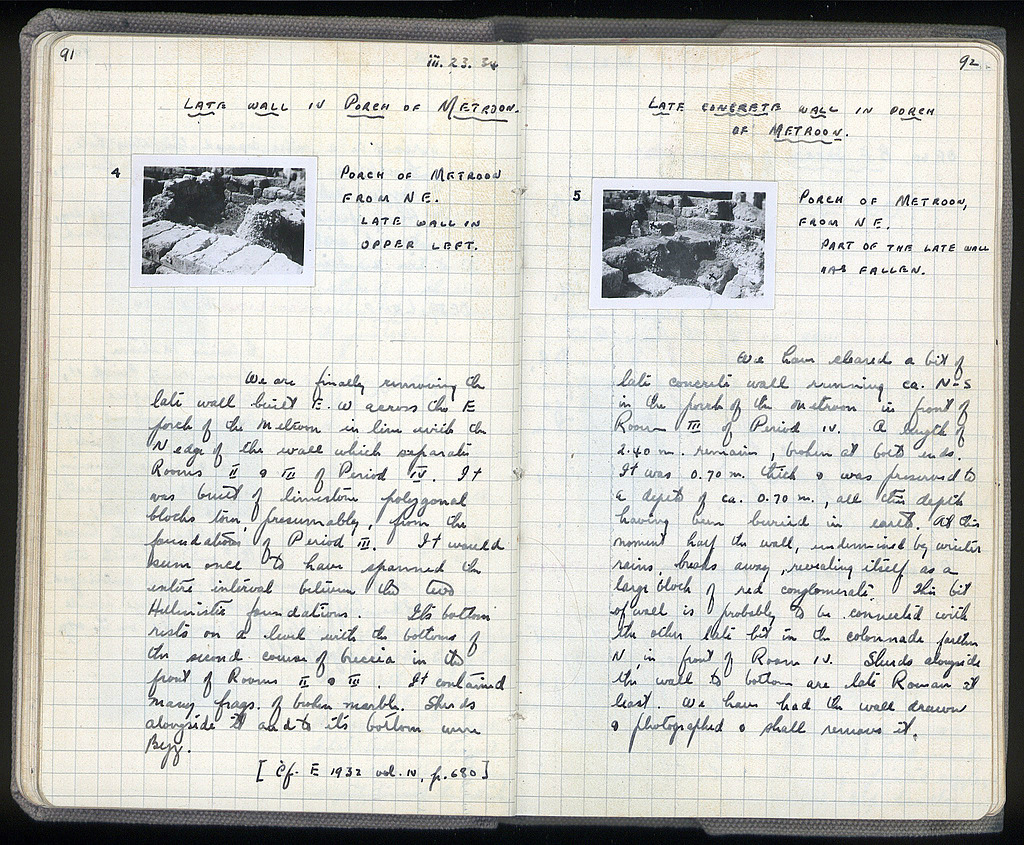 91
III. 23. 34
LATE WALL IN PORCH OF METROON.
4
PORCH OF METROON
FROM NE.
LATE WALL IN
UPPER LEFT.
We are finally removing the
late wall built E.W across the E
porch of the Metroon in line with the
N edge of the wall which separates
Rooms II & III of Period IV. It
was built of limestone polygonal
blocks torn, presumably, from the
foundations of Period III. It would
seem once to have spanned the
entire interval between the two
Hellenistic foundations. Its bottom
rests on a level with the bottoms of
the second course of breccia in the
front of Rooms II & III. It contained
many frags. of broken marble. Sherds
alongside it and to its bottom were
Byz.
[Cf. E 1932 vol. IV, p. 680]
92
LATE CONCRETE WALL IN PORCH
OF METROON.
5
PORCH OF METROON,
FROM NE.
PART OF THE LATE WALL
HAS FALLEN.
We have cleared a bit of
late concrete wall running ca. N-S
in the porch of the Metroon in front of
Room III of Period IV. A length of
2.40 m. remains, broken at both ends.
It was 0.70 m. thick & was preserved to
a depth of ca. 0.70 m., all this depth
having been buried in earth. At this
moment half the wall, undermined by winter
rains, breaks away, revealing itself as a
large block of red conglomerate. This bit
of wall is probably to be connected with
the other late bit in the colonnade farther
N, in front of Room IV. Sherds alongside
the wall to bottom are late Roman at
least. We have had the wall drawn
& photographed & shall remove it.